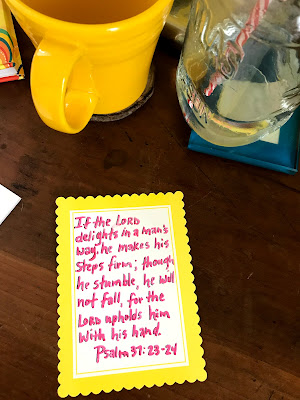 If the LORD
delights in a man's
way, he makes his
steps firm; though
he stumble, he will
not fall, for the
LORD upholds him
with his hand.
Psalm 37:23-24